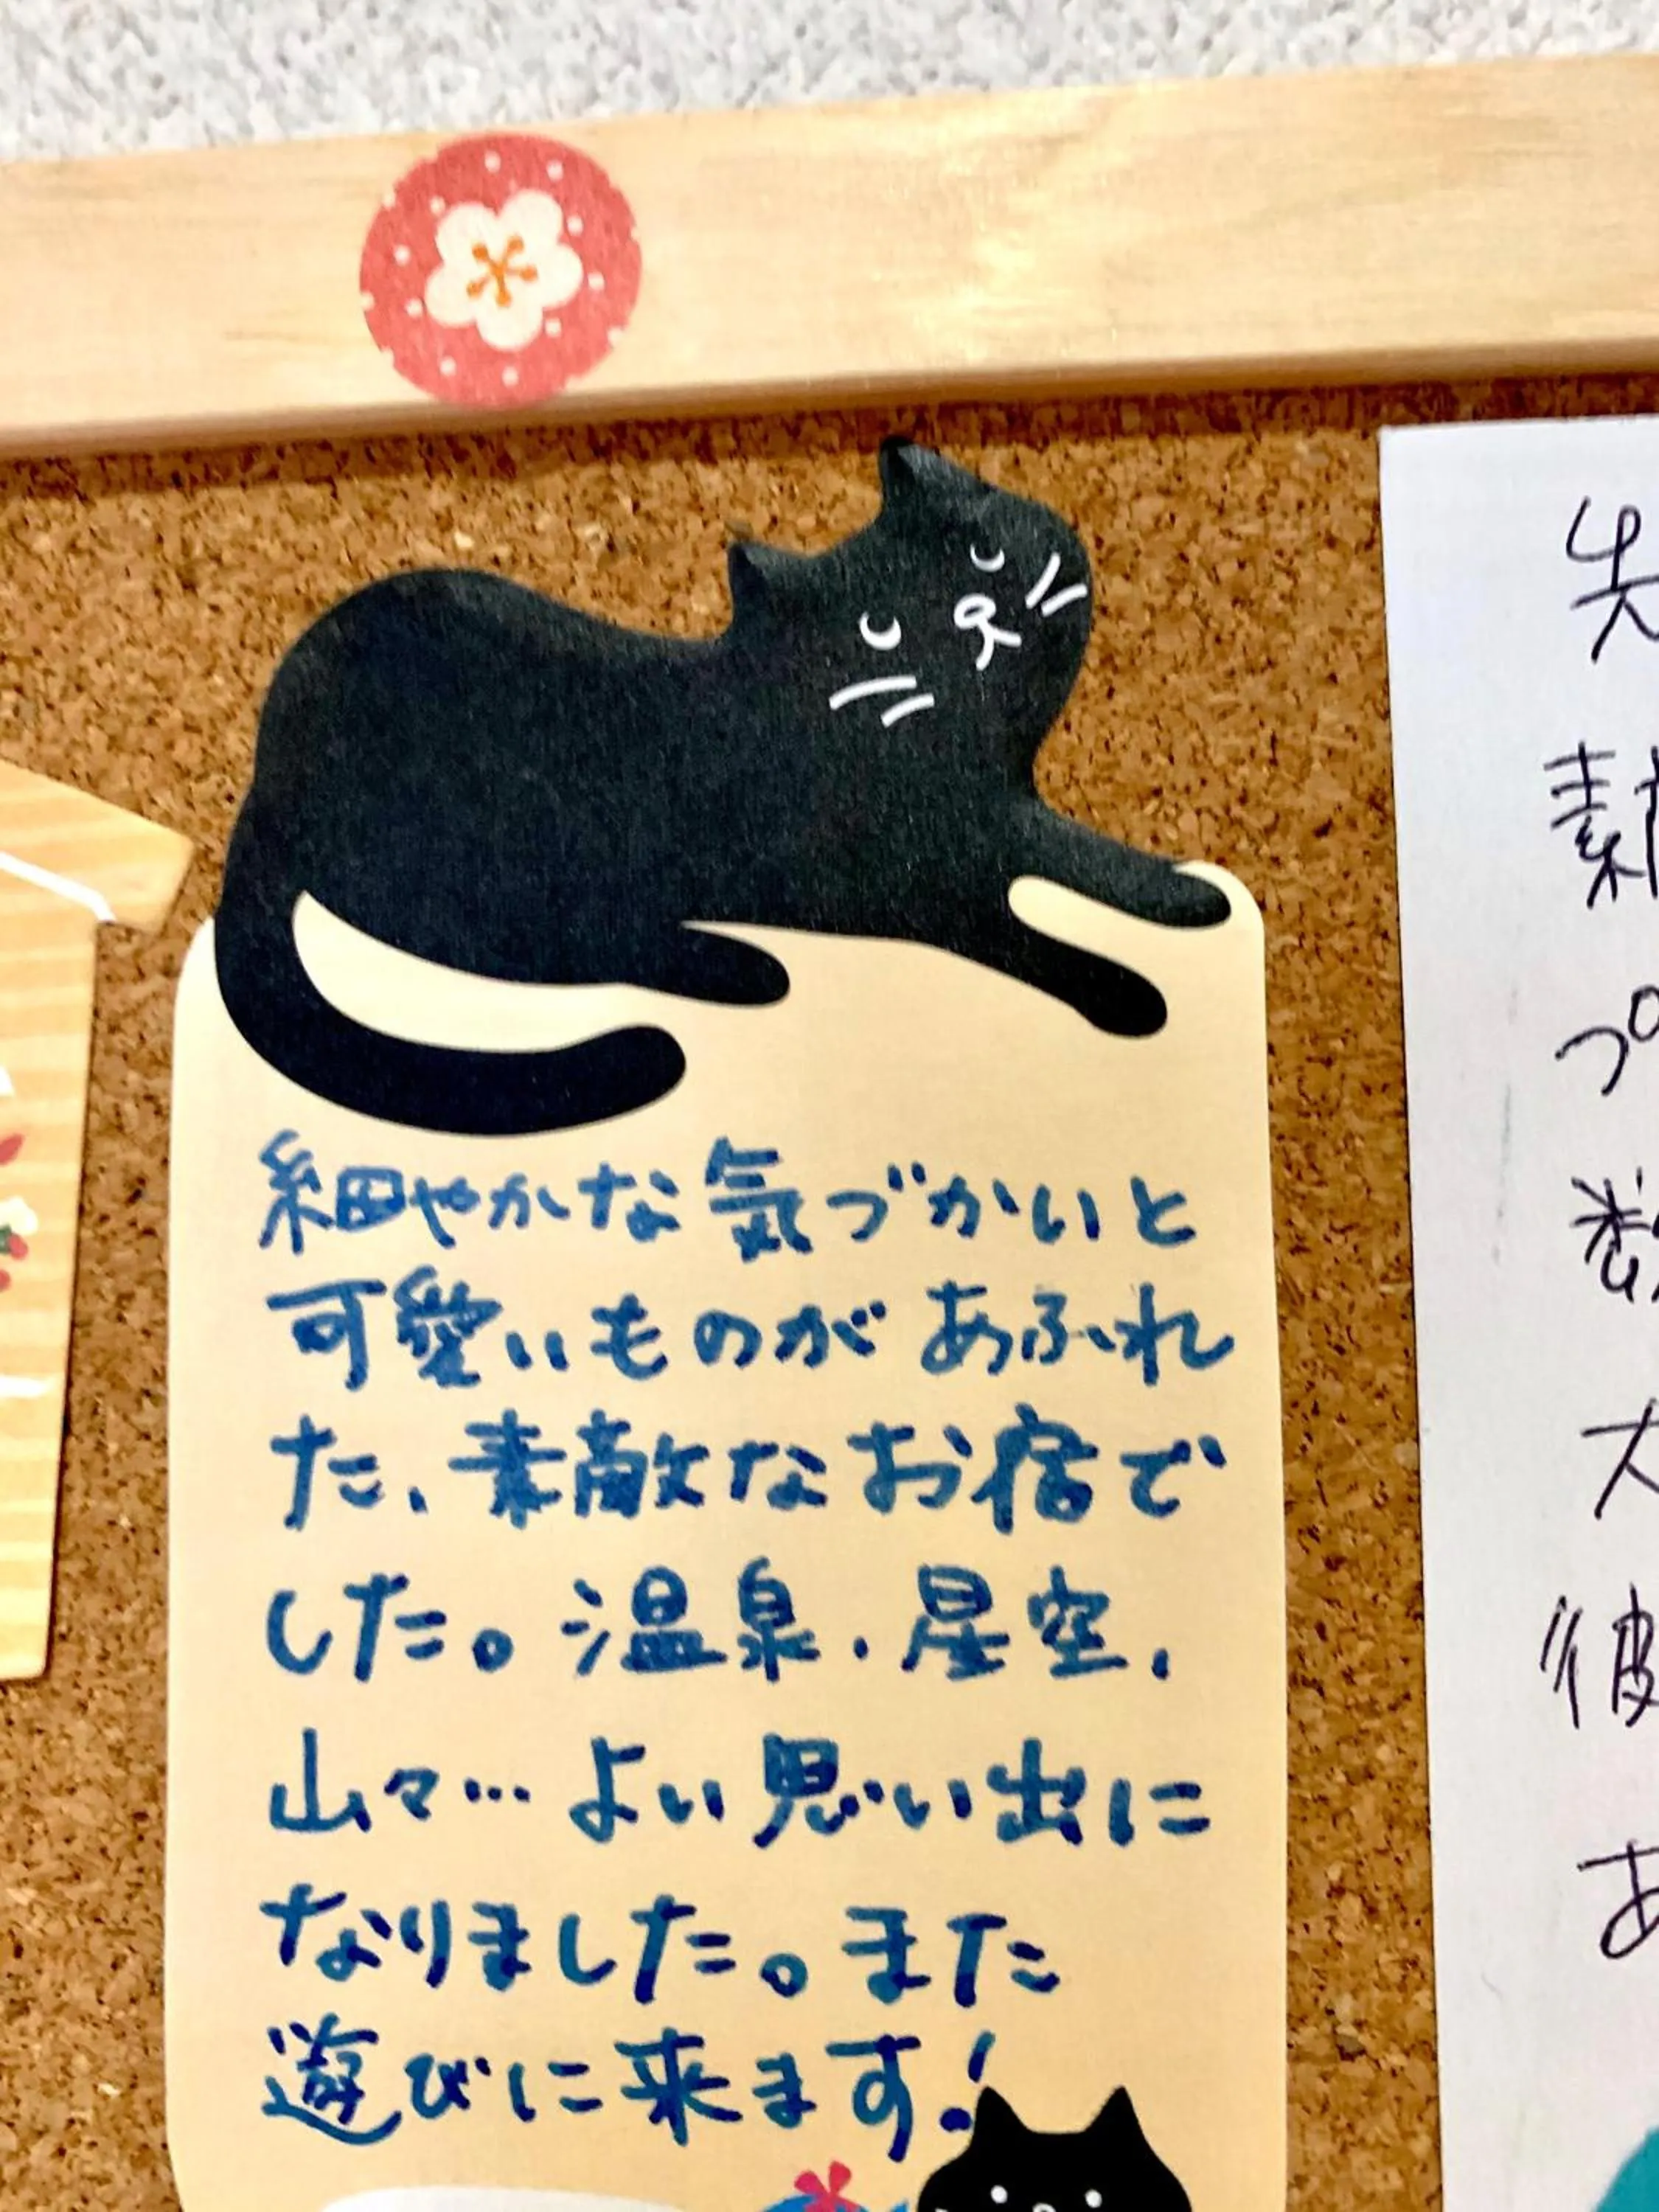 細やかな気づかいと
可愛いものがあふれ
た、素敵なお宿で
した。温泉、星空、
山々…よい思い出に
なりました。また
遊びに来ます!
先
素
プ
数
大
彼
あ